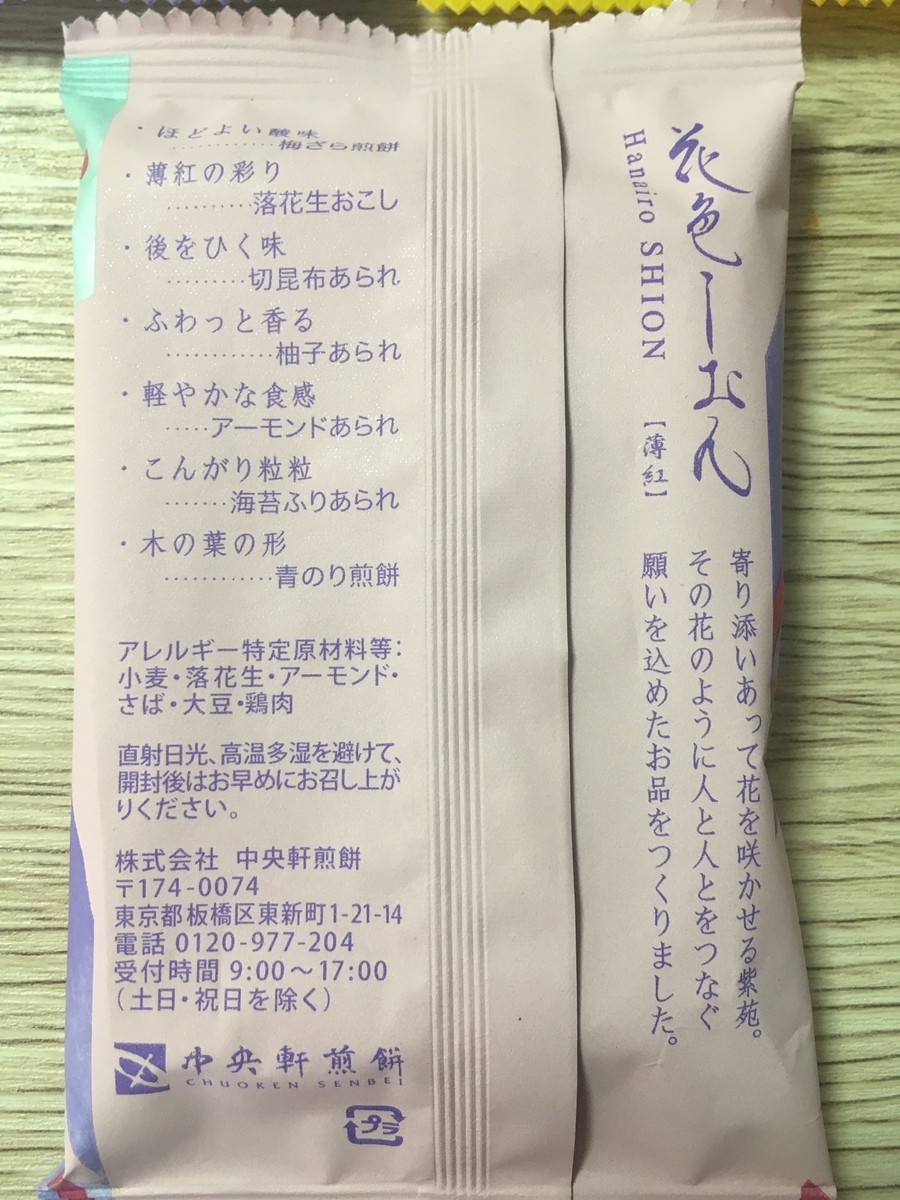 花色しおん
Hanairo SHION
【薄紅】
寄り添いあって花を咲かせる紫苑。
その花のように人と人とをつなぐ
願いを込めたお品をつくりました。
・ほどよい酸味
…………梅ざら煎餅
・薄紅の彩り
………落花生おこし
・後をひく味
………切昆布あられ
・ふわっと香る
…………柚子あられ
・軽やかな食感
‥‥アーモンドあられ
・こんがり粒粒
……海苔ふりあられ
・木の葉の形
…………青のり煎餅
アレルギー特定原材料等：
小麦・落花生・アーモンド・
さば・大豆・鶏肉
直射日光、高温多湿を避けて、
開封後はお早めにお召し上が
りください。
株式会社 中央軒煎餅
〒174-0074
東京都板橋区東新町1-21-14
電話 0120-977-204
受付時間 9:00～17:00
（土日・祝日を除く）
中央軒煎餅
CHUOKEN SENBEI
プラ